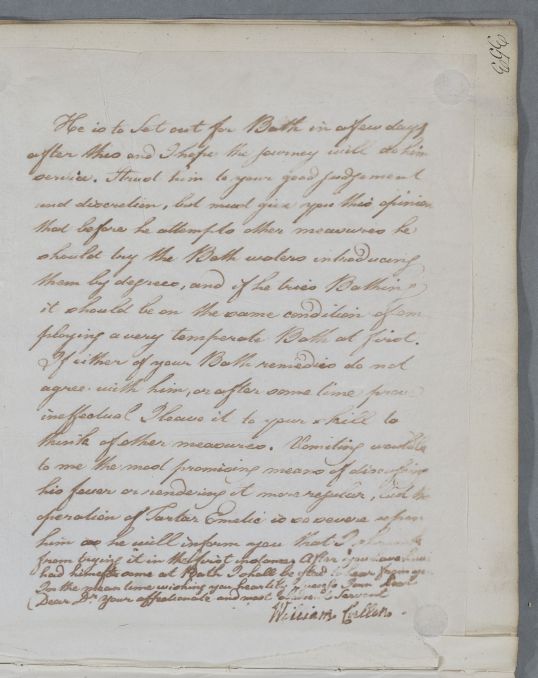 353
He is to Set out for Bath in a few days
after this and I hope the journey will do him
service. I trust him to your good judgement
and discretion, but must give you this opinion
that before he attempts other measures he
should try the Bath waters introducing
them by degrees, and if he tries Bathing
it should be on the same condition of em
ploying a very temperate Bath at first.
If either of your Bath remedies do not
agree with him, or after some time prove
ineffectual I leave it to your skill to
think of other measures. Vomiting would be
to me the most promising means of discussing
his fever or rendering it more regular, but the
operation of Tartar Emetic is so severe upon
him as he will inform you that I
from trying it in the first instance. After you have
had him some time at Bath I shall be glad to hear from you
In the mean time wishing you heartily I am
Dear Dr. Your affectionate and most Obedient Servant
William Cullen.